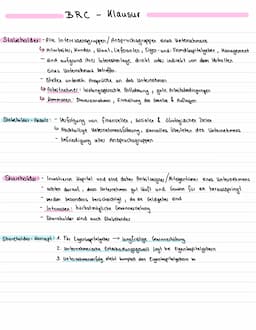 BRC - Klausur
Stakeholder: Alle Interessensgruppen / Anspruchsgruppen eines Unternehmens
↳ Mitarbeiter, Kunden, Staat, Lieferanten, Eigen- und Fremdkapitalgeber, Management
- sind aufgrund ihrer Interessenlage direkt oder indirekt von dem Verhalten
eines Unternehmens betroffen
- Stellen konkrete Ansprüche an das Unternehmen
↳ Arbeitnehmer: leistungsgerechte Entlohnung, gute Arbeitsbedingungen
↳ Kommunen: Steuereinnahmen, Einhaltung der Gesetze & Auflagen
Stakeholder-Ansatz: - Verfolgung von finanziellen, sozialen & ökologischen Zielen
↳ Nachhaltige Unternehmensführung, sinnvolles Überleben des Unternehmens
- Befriedigung aller Anspruchsgruppen
Shareholder: - Investieren Kapital und sind daher Anteilseigner / Miteigentümer eines Unternehmens
- wollen darauf, dass Unternehmen gut läuft und Gewinn für sie herausspringt
- werden besonders berücksichtigt, da sie Geldgeber sind
- Interessen: kurzfristige Gewinnerzielung
- Shareholder sind auch Stakeholder
Shareholder-Konzept: 1. Für Eigenkapitalgeber → langfristige Gewinnerzielung
2. Unternehmerische Entscheidungsgewalt liegt bei Eigenkapitalgebern
3. Unternehmenserfolg steht komplett den Eigenkapitalgebern zu